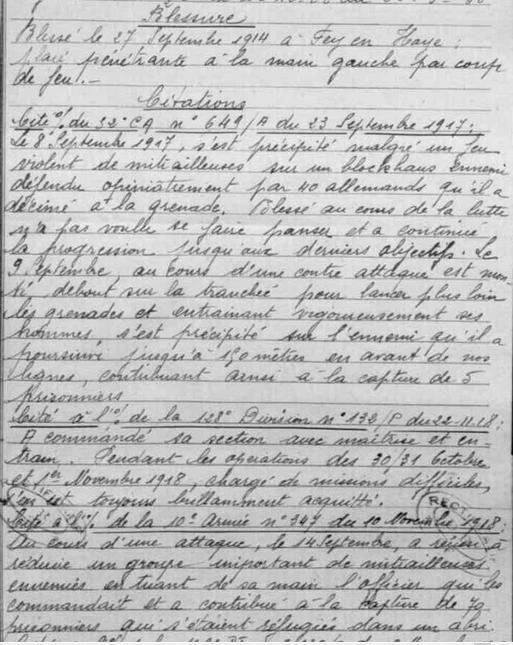 Blessure
Blessé le 27 Septembre 1914 à Fey en Haye ;
plaie pénétrante à la main gauche par coup
de feu.-
Citations
Cité O/ du 32° CA n° 649/A du 23 Septembre 1917:
Le 8 Septembre 1917, s'est précipité malgré un feu
violent de mitrailleuses sur un blockhaus ennemi
défendu opiniâtrement par 40 allemands qu'il a
décimé à la grenade. Blessé au cours de la lutte
n'a pas voulu se faire panser et a continué
la progression jusqu'aux derniers objectifs. Le
9 Septembre, au cours d'une contre attaque est mon-
té debout sur la tranchée pour lancer plus loin
les grenades et entrainant vigoureusement ses
hommes, s'est précipité sur l'ennemi qu'il a
poursuivi jusqu'à 150 mètres en avant de nos
lignes, contribuant ainsi à la capture de 5
prisonniers
Cité à l'O/ de la 128° Division n° 132/P du 22-11.18:
A commandé sa section avec maîtrise et en-
train. Pendant les opérations des 30/31 Octobre
et 1er Novembre 1918, chargé de missions difficiles,
s'en est toujours brillamment acquitté.
Cité à l'O/ de la 10° Armée n° 347 du 10 Novembre 1918:
Au cours d'une attaque, le 14 Septembre, a réussi à
réduire un groupe important de mitrailleuses
ennemies en tuant de sa main l'officier qui les
commandait et a contribué à la capture de 70
prisonniers qui s'étaient réfugiés dans un abri